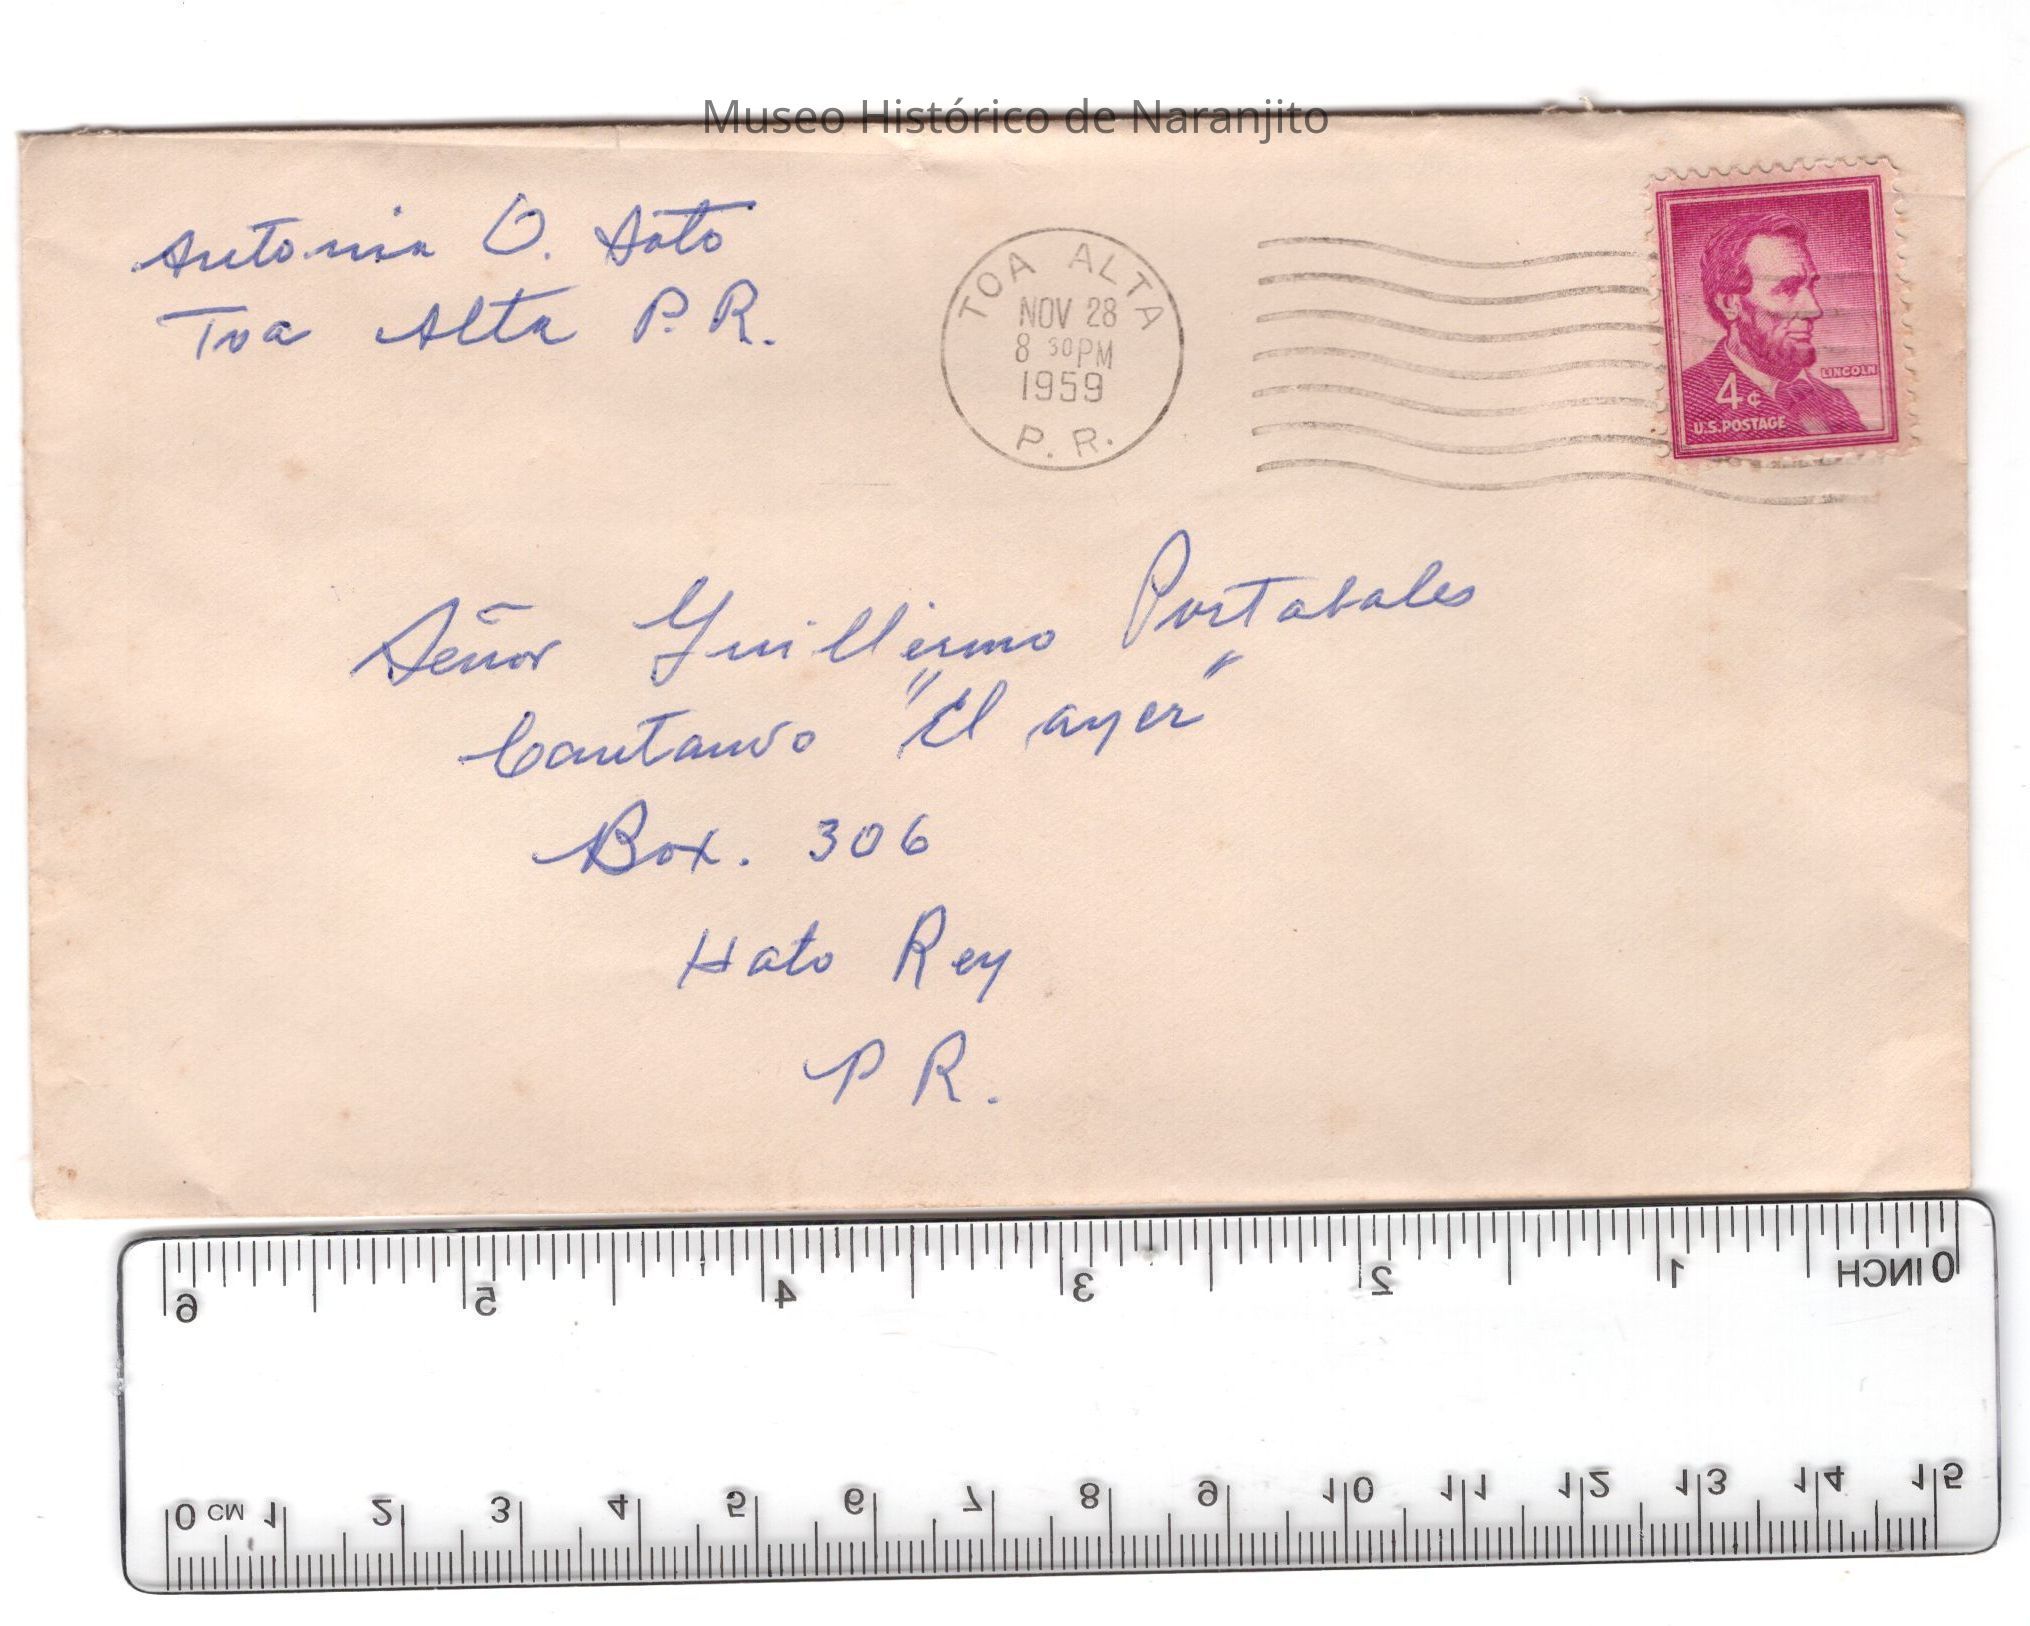 Museo Histórico de Naranjito
Antonia O. Soto
Toa Alta P.R.
TOA ALTA
NOV 28
8 30PM
1959
P. R.
LINCOLN
4¢
U.S. POSTAGE
Señor Guillermo Portabales
Cantando "El ayer"
Box. 306
Hato Rey
P R.
6 5 4 3 2 1 0 INCH
0 CM 1 2 3 4 5 6 7 8 9 10 11 12 13 14 15